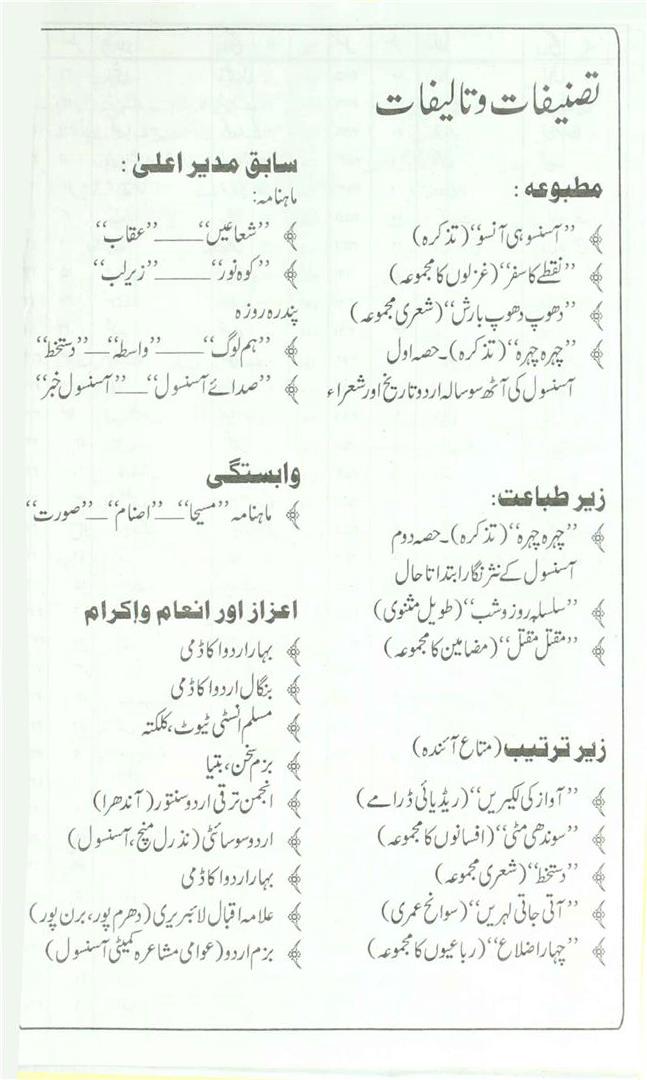 تصنیفات و تالیفات
مطبوعہ :
’’آنسو ہی آنسو‘‘ (تذکرہ)
’’نقطے کا سفر‘‘ (غزلوں کا مجموعہ)
’’دھوپ دھوپ بارش‘‘ (شعری مجموعہ)
’’چہرہ چہرہ‘‘ (تذکرہ)۔ حصہ اول
آسنسول کی آٹھ سو سالہ اردو تاریخ اور شعراء
زیر طباعت:
’’چہرہ چہرہ‘‘ (تذکرہ)۔ حصہ دوم
آسنسول کے نثر نگار ابتدا تا حال
’’سلسلہ روز و شب‘‘ (طویل مثنوی)
’’مقتل مقتل‘‘ (مضامین کا مجموعہ)
زیر ترتیب (متاع آئندہ)
’’آواز کی لکیریں‘‘ (ریڈیائی ڈرامے)
’’سوندھی مٹی‘‘ (افسانوں کا مجموعہ)
’’دستخط‘‘ (شعری مجموعہ)
’’آتی جاتی لہریں‘‘ (سوانح عمری)
’’چہار اضلاع‘‘ (رباعیوں کا مجموعہ)
سابق مدیر اعلیٰ :
ماہنامہ:
’’شعاعیں‘‘ ____ ’’عقاب‘‘
’’کوہ نور‘‘ ____ ’’زیر لب‘‘
پندرہ روزہ
’’ہم لوگ‘‘ ____ ’’واسطہ‘‘ __ ’’دستخط‘‘
’’صدائے آسنسول‘‘ __ ’’آسنسول خبر‘‘
وابستگی
ماہنامہ ’’مسیحا‘‘ __ ’’اصنام‘‘ __ ’’صورت‘‘
اعزاز اور انعام واکرام
بہار اردو اکاڈمی
بنگال اردو اکاڈمی
مسلم انسٹی ٹیوٹ، کلکتہ
بزم سخن، بتیا
انجمن ترقی اردو سنتور (آندھرا)
اردو سوسائٹی (نذرل منچ، آسنسول)
بہار اردو اکاڈمی
علامہ اقبال لائبریری (دھرم پور، برن پور)
بزم اردو (عوامی مشاعرہ کمیٹی آسنسول)